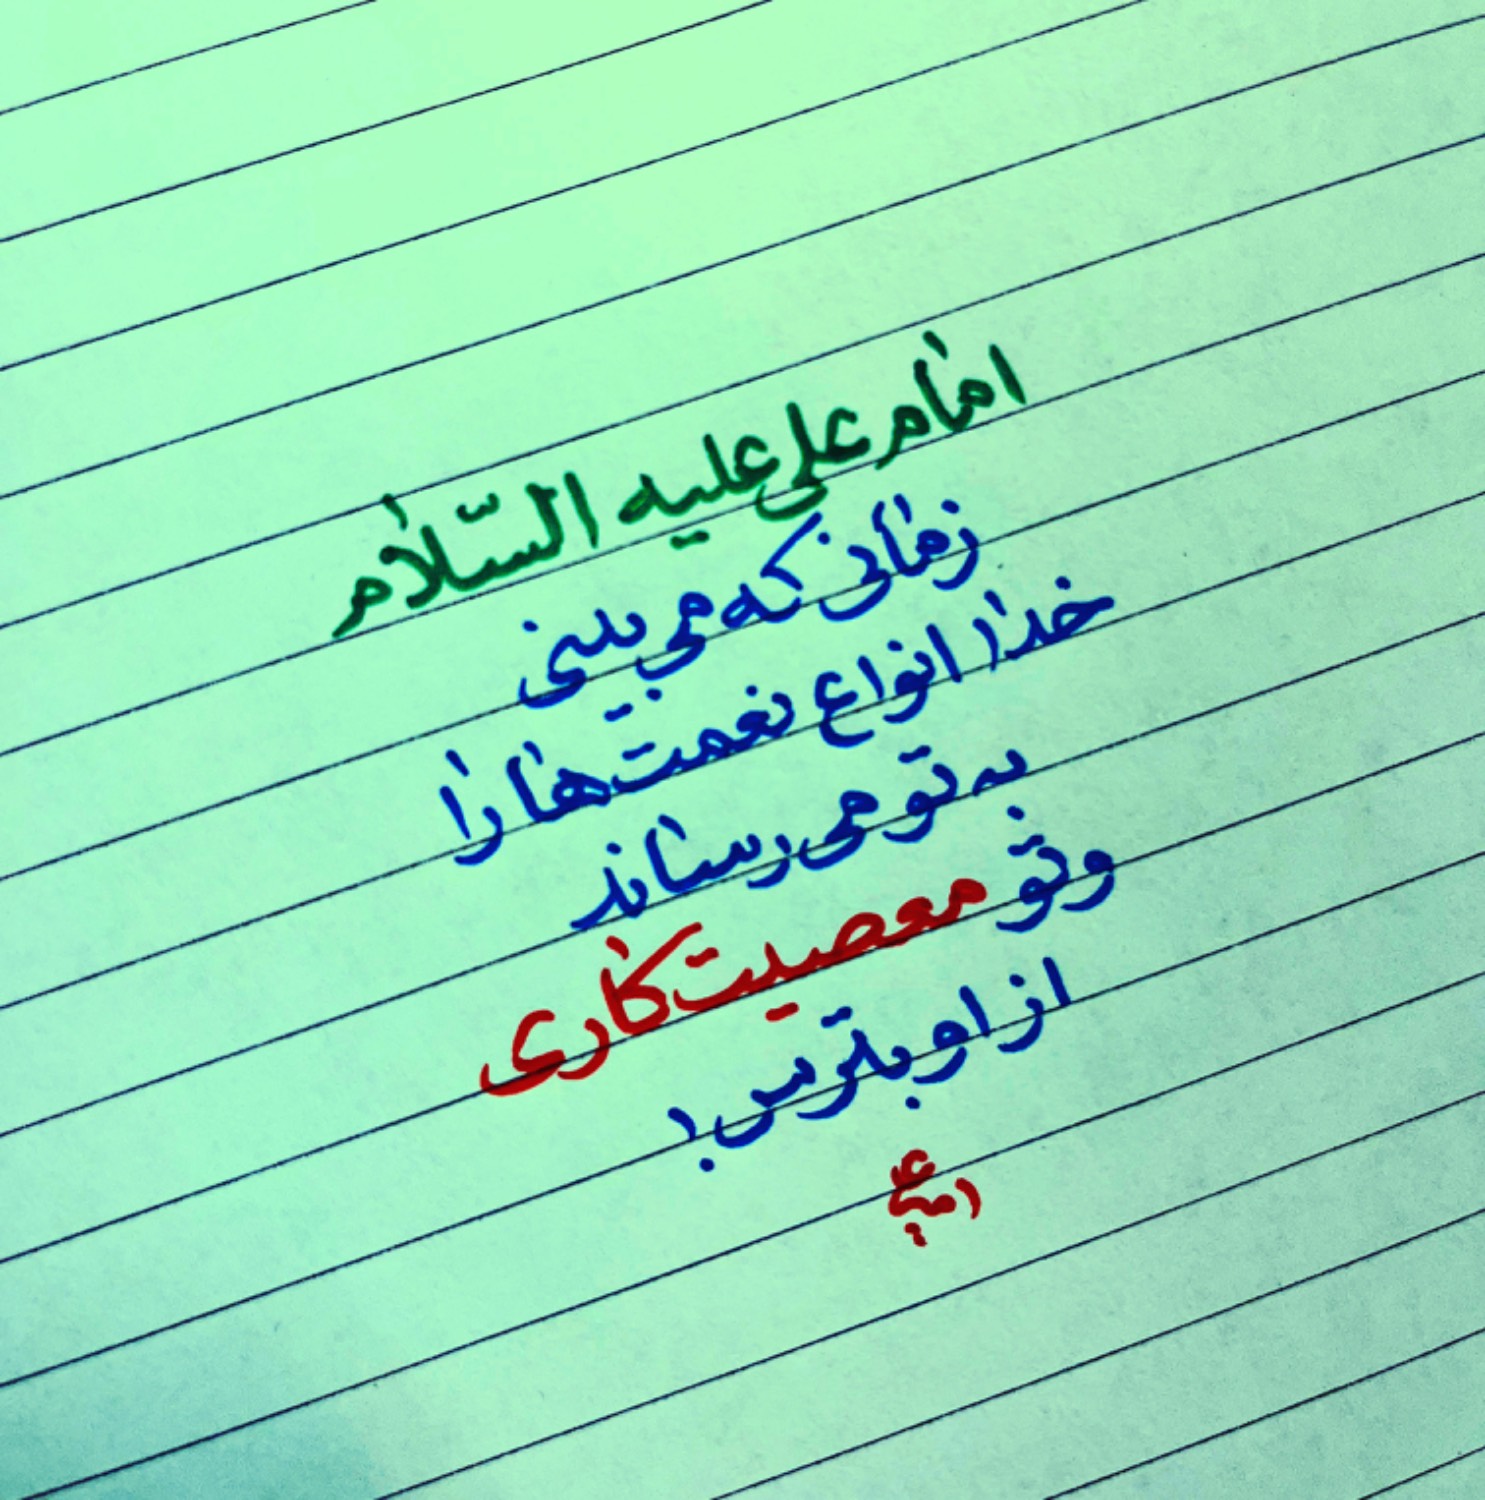 امام علی علیه السّلام
زمانی که می بینی
خدا انواع نعمت ها را
به تو می رساند
و تو معصیت کاری
از او بترس!